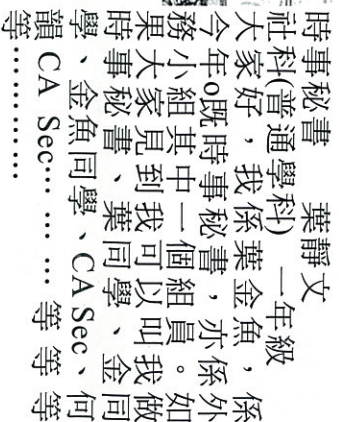 時事秘書 葉靜文
社科(普通學科) 一年級
大家好，我係葉金魚，係
今年o既時事秘書，亦係外
務小組其中一個組員。如
果大家見到我可以叫我做
時事秘書、葉同學、金同
學、金魚同學、CA Sec、何
韻 CA Sec… … 等 等 等
等…………